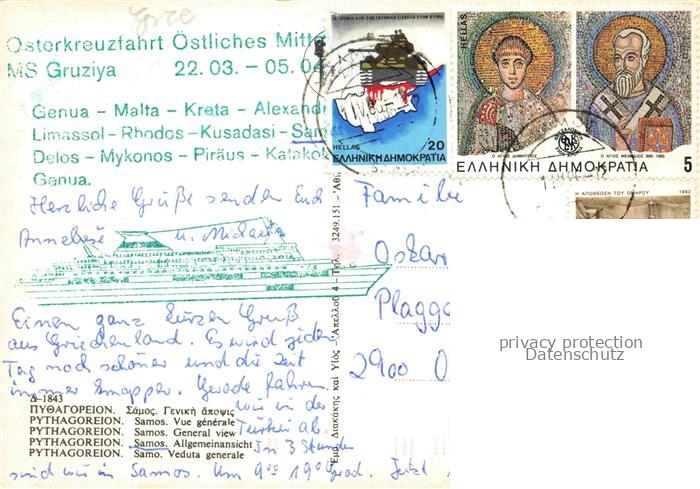 Osterkreuzfahrt Östliches Mitte
MS Gruziya 22.03. - 05.04
Genua - Malta - Kreta - Alexandr
Limassol - Rhodos - Kusadasi - Sam
Delos - Mykonos - Piräus - Katakol
Genua.
HELLAS 20
ΕΛΛΗΝΙΚΗ ΔΗΜΟΚΡΑΤΙΑ
HELLAS
Ο ΑΓΙΟΣ ΔΗΜΗΤΡΙΟΣ
Ο ΑΓΙΟΣ ΜΕΘΟΔΙΟΣ 885-1985
ΕΛΛΗΝΙΚΗ ΔΗΜΟΚΡΑΤΙΑ 5
Η ΑΠΟΘΕΩΣΗ ΤΟΥ ΟΜΗΡΟΥ 1983
Herzliche Grüße senden Euch
Anneliese u. Michael
Einen ganz kurzen Gruß
aus Griechenland. Es wird jeden
Tag noch schöner und die Zeit
immer knapper. Gerade fahren
wir in der
Türkei ab.
In 3 Stunden
sind wir in Samos. Um 9⁰⁰ 19⁰ grad. Jetzt
Familie
Oskar
Plagge
2900 O
Δ-1843
ΠΥΘΑΓΟΡΕΙΟΝ. Σάμος. Γενική ἄποψις
PYTHAGOREION. Samos. Vue générale
PYTHAGOREION. Samos. General view
PYTHAGOREION. Samos. Allgemeinansicht
PYTHAGOREION. Samos. Veduta generale
Ἐμμ. Διακάκης καὶ Υἱός - Ἀπέλλου 4 - Τηλ. 3249.151 - Ἀθ
privacy protection
Datenschutz